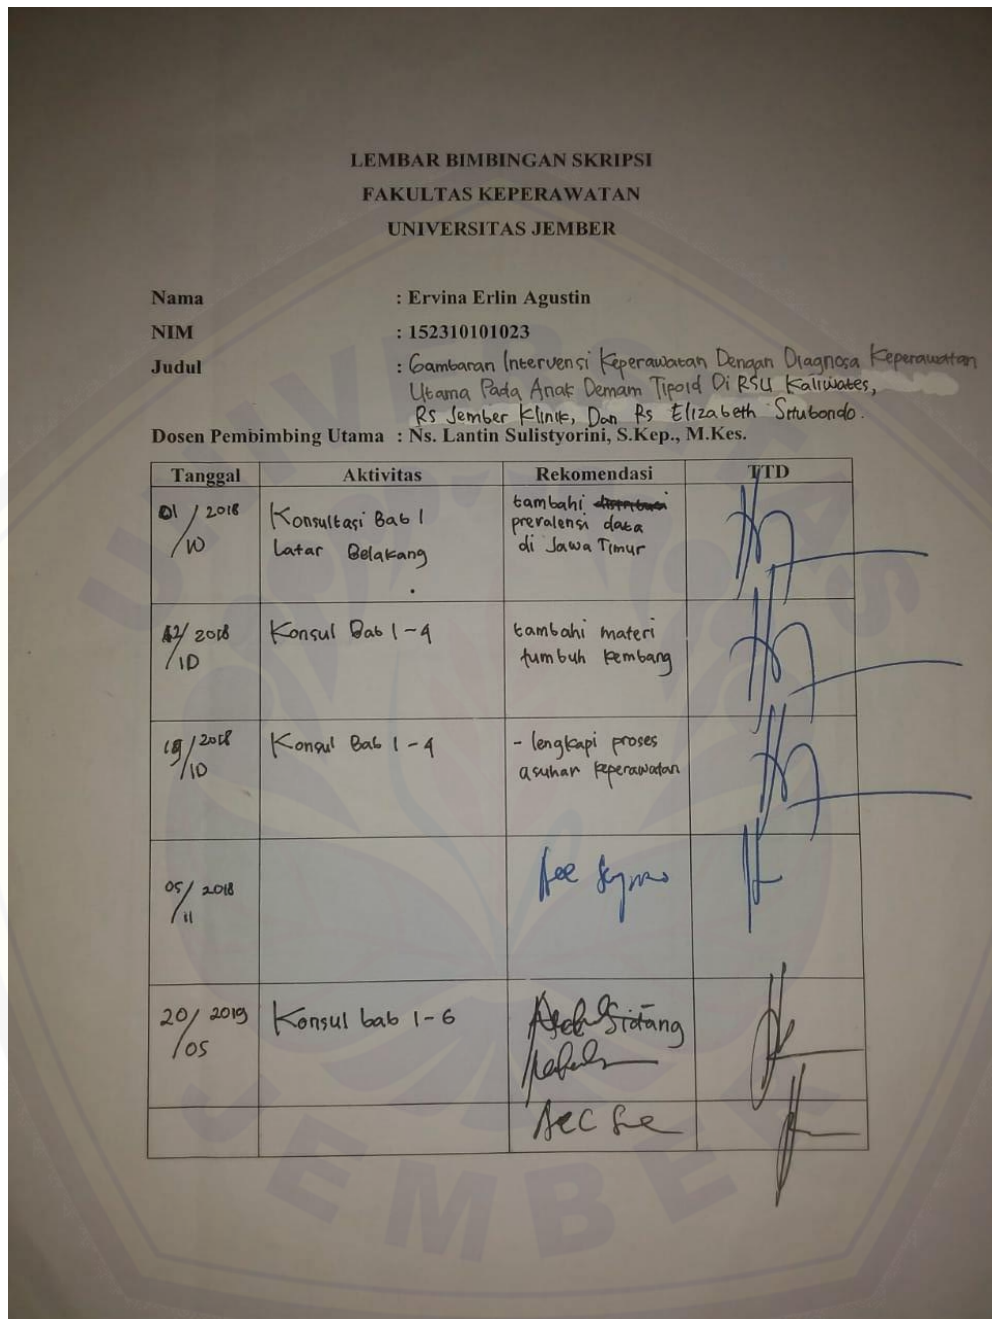 LEMBAR BIMBINGAN SKRIPSI
FAKULTAS KEPERAWATAN
UNIVERSITAS JEMBER
Nama : Ervina Erlin Agustin
NIM : 152310101023
Judul : Gambaran Intervensi Keperawatan Dengan Diagnosa Keperawatan
Utama Pada Anak Demam Tipoid Di RSU Kaliwates,
Rs Jember Klinik, Dan Rs Elizabeth Situbondo.
Dosen Pembimbing Utama : Ns. Lantin Sulistyorini, S.Kep., M.Kes.
Tanggal Aktivitas Rekomendasi TTD
01/10 2018 Konsultasi Bab 1 tambahi
Latar Belakang prevalensi data
di Jawa Timur
12/10 2018 Konsul Bab 1-4 tambahi materi
tumbuh kembang
19/10 2018 Konsul Bab 1-4 - lengkapi proses
asuhan keperawatan
05/11 2018 Acc
20/05 2019 Konsul bab 1-6 Sidang
Acc
UNIVERSITAS
JEMBER